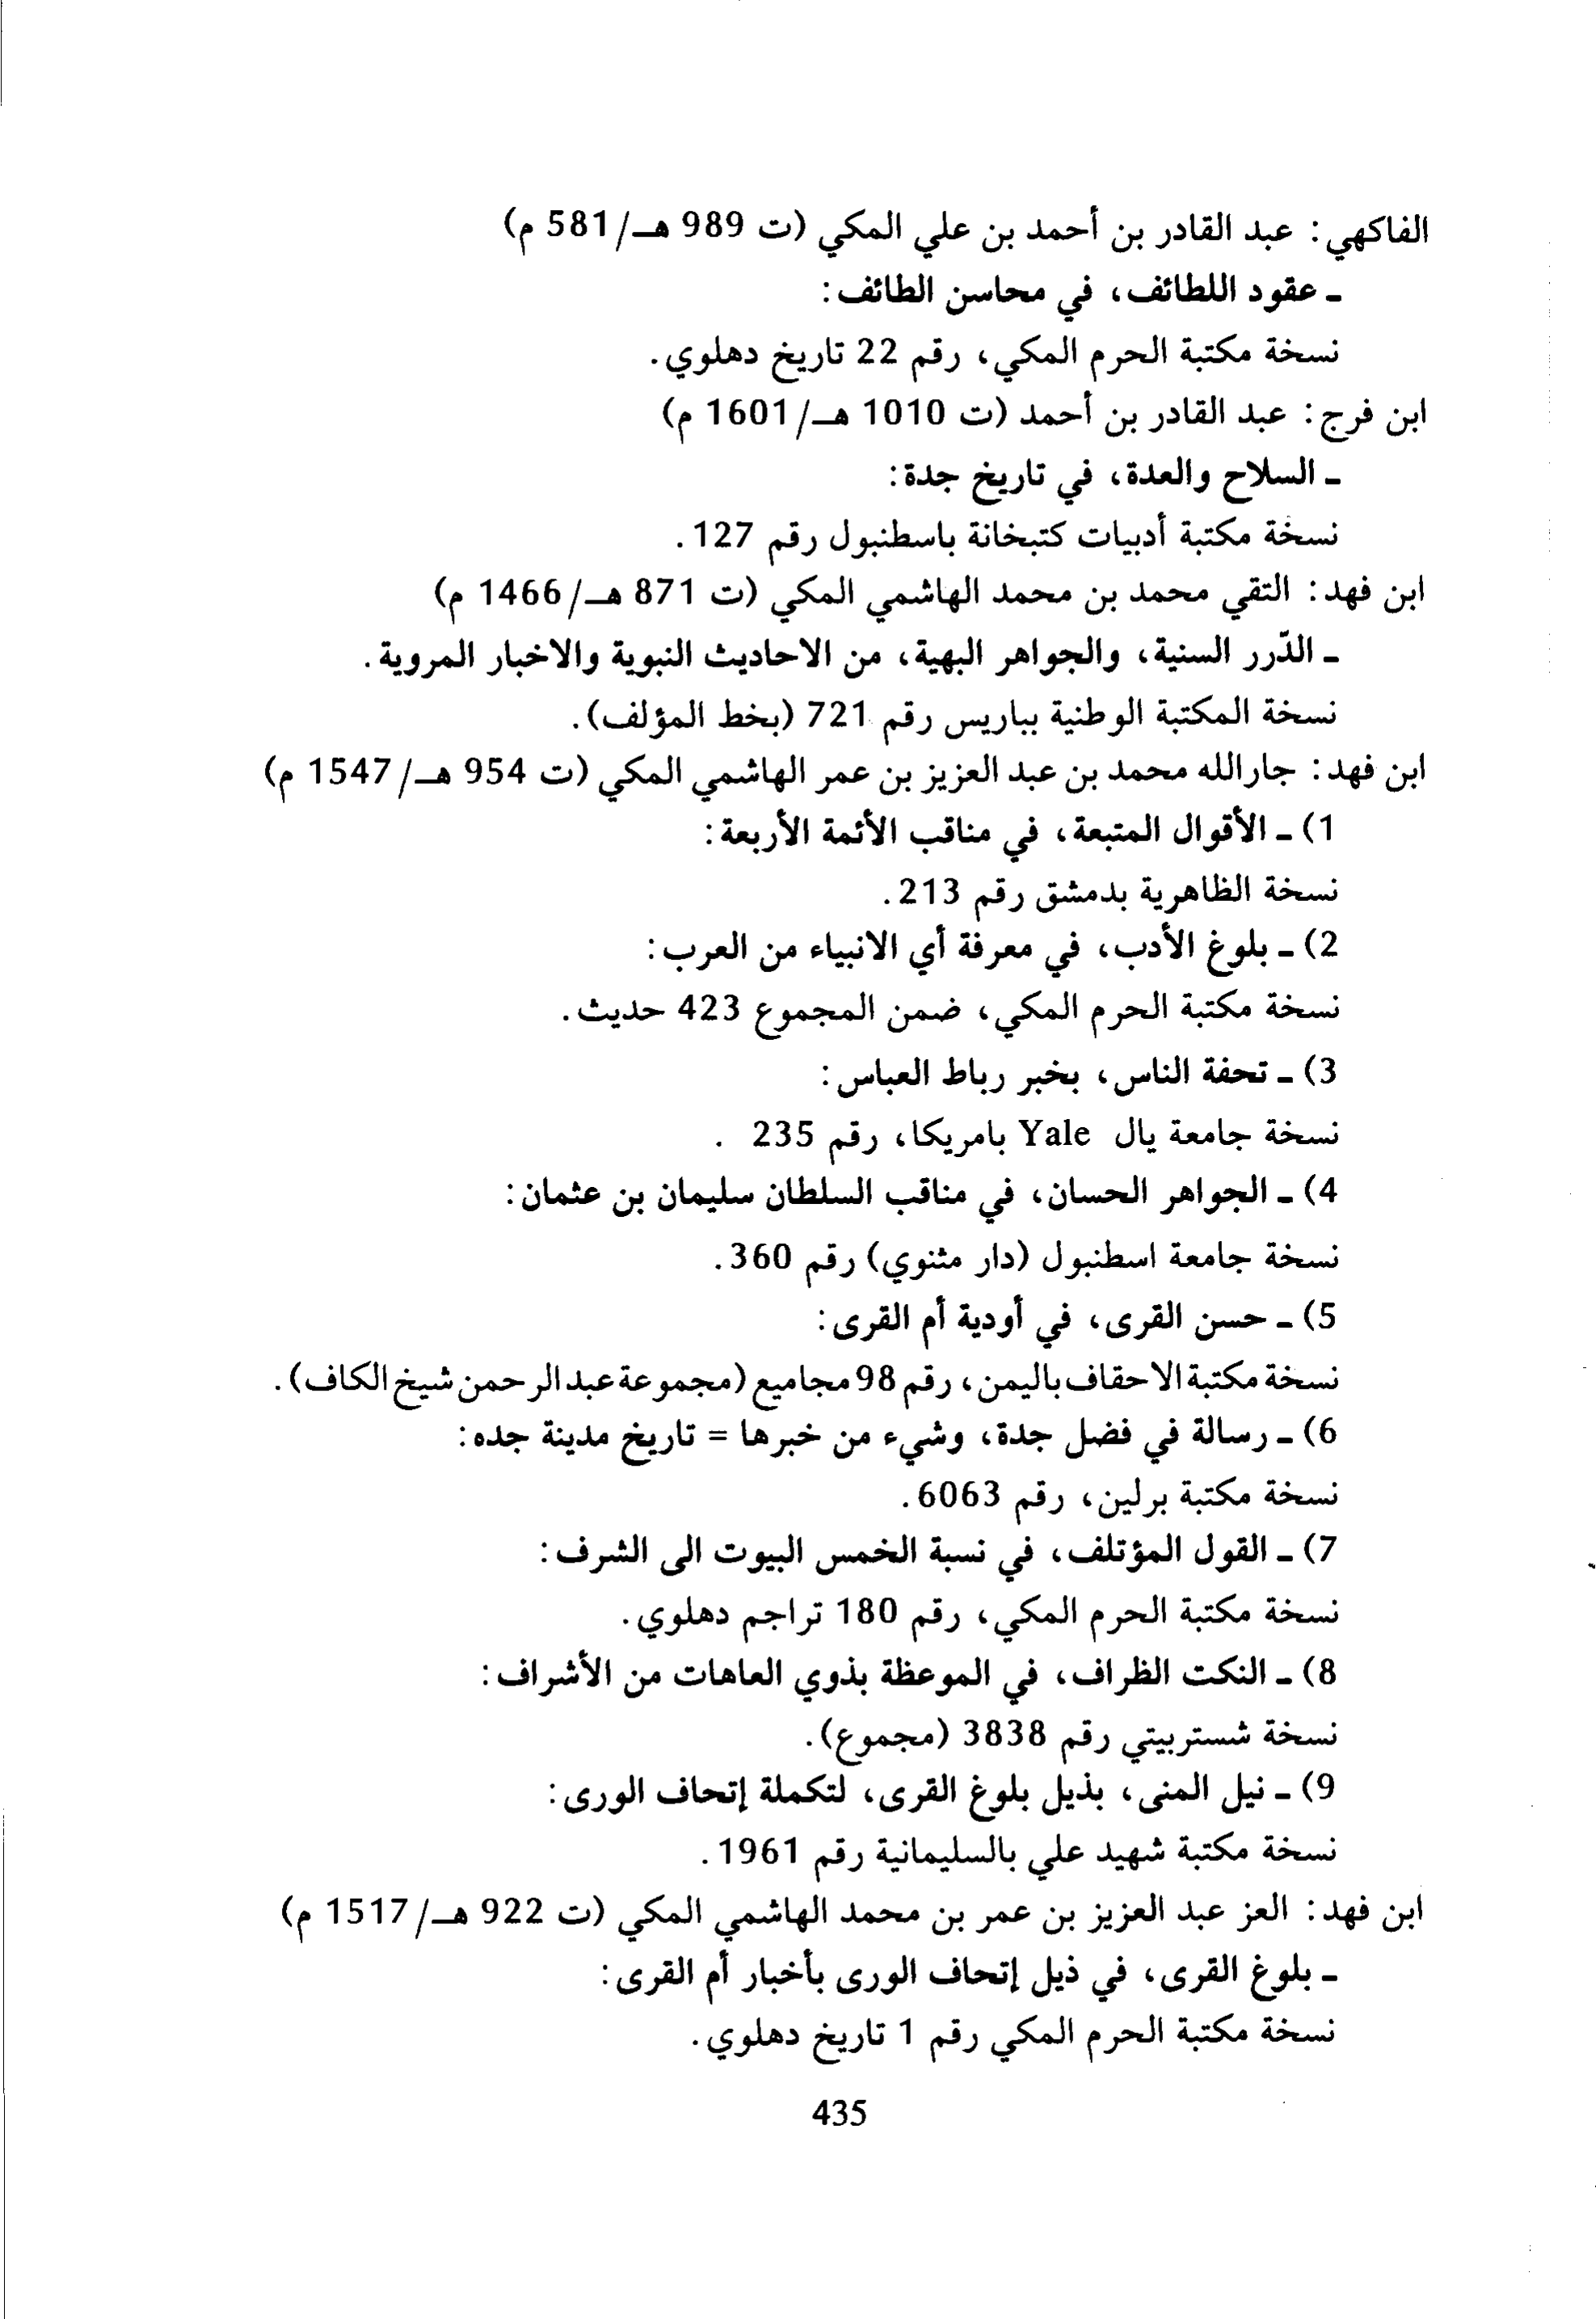 الفاكهي: عبد القادر بن أحمد بن علي المكي (ت 989 هـ/581 م)
ـ عقود اللطائف، في محاسن الطائف:
نسخة مكتبة الحرم المكي، رقم 22 تاريخ دهلوي.
ابن فرج: عبد القادر بن أحمد (ت 1010 هـ/1601 م)
ـ السلاح والعدة، في تاريخ جدة:
نسخة مكتبة أدبيات كتبخانة باسطنبول رقم 127.
ابن فهد: التقي محمد بن محمد الهاشمي المكي (ت 871 هـ/1466 م)
ـ الدّرر السنية، والجواهر البهية، من الاحاديث النبوية والاخبار المروية.
نسخة المكتبة الوطنية بباريس رقم 721 (بخط المؤلف).
ابن فهد: جارالله محمد بن عبد العزيز بن عمر الهاشمي المكي (ت 954 هـ/1547 م)
1) ـ الأقوال المتبعة، في مناقب الأئمة الأربعة:
نسخة الظاهرية بدمشق رقم 213.
2) ـ بلوغ الأدب، في معرفة أي الانبياء من العرب:
نسخة مكتبة الحرم المكي، ضمن المجموع 423 حديث.
3) ـ تحفة الناس، بخبر رباط العباس:
نسخة جامعة يال Yale بامريكا، رقم 235 .
4) ـ الجواهر الحسان، في مناقب السلطان سليمان بن عثمان:
نسخة جامعة اسطنبول (دار مثنوي) رقم 360.
5) ـ حسن القرى، في أودية أم القرى:
نسخة مكتبة الاحقاف باليمن، رقم 98 مجاميع (مجموعة عبد الرحمن شيخ الكاف).
6) ـ رسالة في فضل جدة، وشيء من خبرها = تاريخ مدينة جده:
نسخة مكتبة برلين، رقم 6063.
7) ـ القول المؤتلف، في نسبة الخمس البيوت الى الشرف:
نسخة مكتبة الحرم المكي، رقم 180 تراجم دهلوي.
8) ـ النكت الظراف، في الموعظة بذوي العاهات من الأشراف:
نسخة شستربيتي رقم 3838 (مجموع).
9) ـ نيل المنى، بذيل بلوغ القرى، لتكملة إتحاف الورى:
نسخة مكتبة شهيد علي بالسليمانية رقم 1961.
ابن فهد: العز عبد العزيز بن عمر بن محمد الهاشمي المكي (ت 922 هـ/1517 م)
ـ بلوغ القرى، في ذيل إتحاف الورى بأخبار أم القرى:
نسخة مكتبة الحرم المكي رقم 1 تاريخ دهلوي.
435